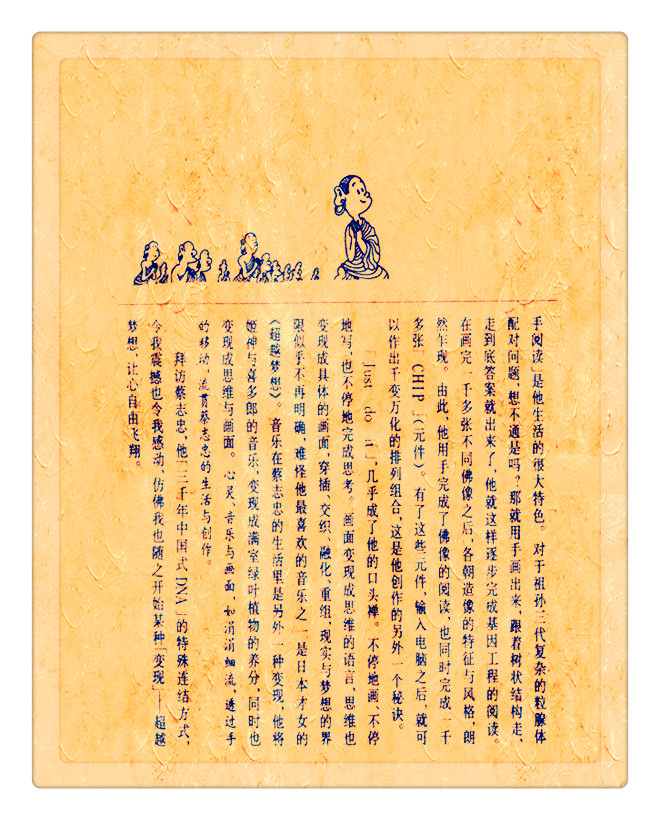 手阅读」是他生活的很大特色。对于祖孙三代复杂的粒腺体
配对问题,想不通是吗?那就用手画出来,跟着树状结构走,
走到底答案就出来了,他就这样逐步完成基因工程的阅读。
在画完一千多张不同佛像之后,各朝造像的特征与风格,朗
然乍现。由此,他用手完成了佛像的阅读,也同时完成一千
多张「CHIP」(元件)。有了这些元件,输入电脑之后,就可
以作出千变万化的排列组合,这是他创作的另外一个秘诀。
「Just do it」,几乎成了他的口头禅。不停地画、不停
地写,也不停地完成思考。画面变现成思维的语言,思维也
变现成具体的画面,穿插、交织、融化、重组,现实与梦想的界
限似乎不再明确,难怪他最喜欢的音乐之一是日本才女的
《超越梦想》。音乐在蔡志忠的生活里是另外一种变现,他将
姬神与喜多郎的音乐,变现成满室绿叶植物的养分,同时也
变现成思维与画面。心灵、音乐与画面,如涓涓细流,透过手
的移动,流贯蔡志忠的生活与创作。
拜访蔡志忠,他「三千年中国式DNA」的特殊连结方式,
令我震撼也令我感动,仿佛我也随之开始某种「变现」——超越
梦想,让心自由飞翔。